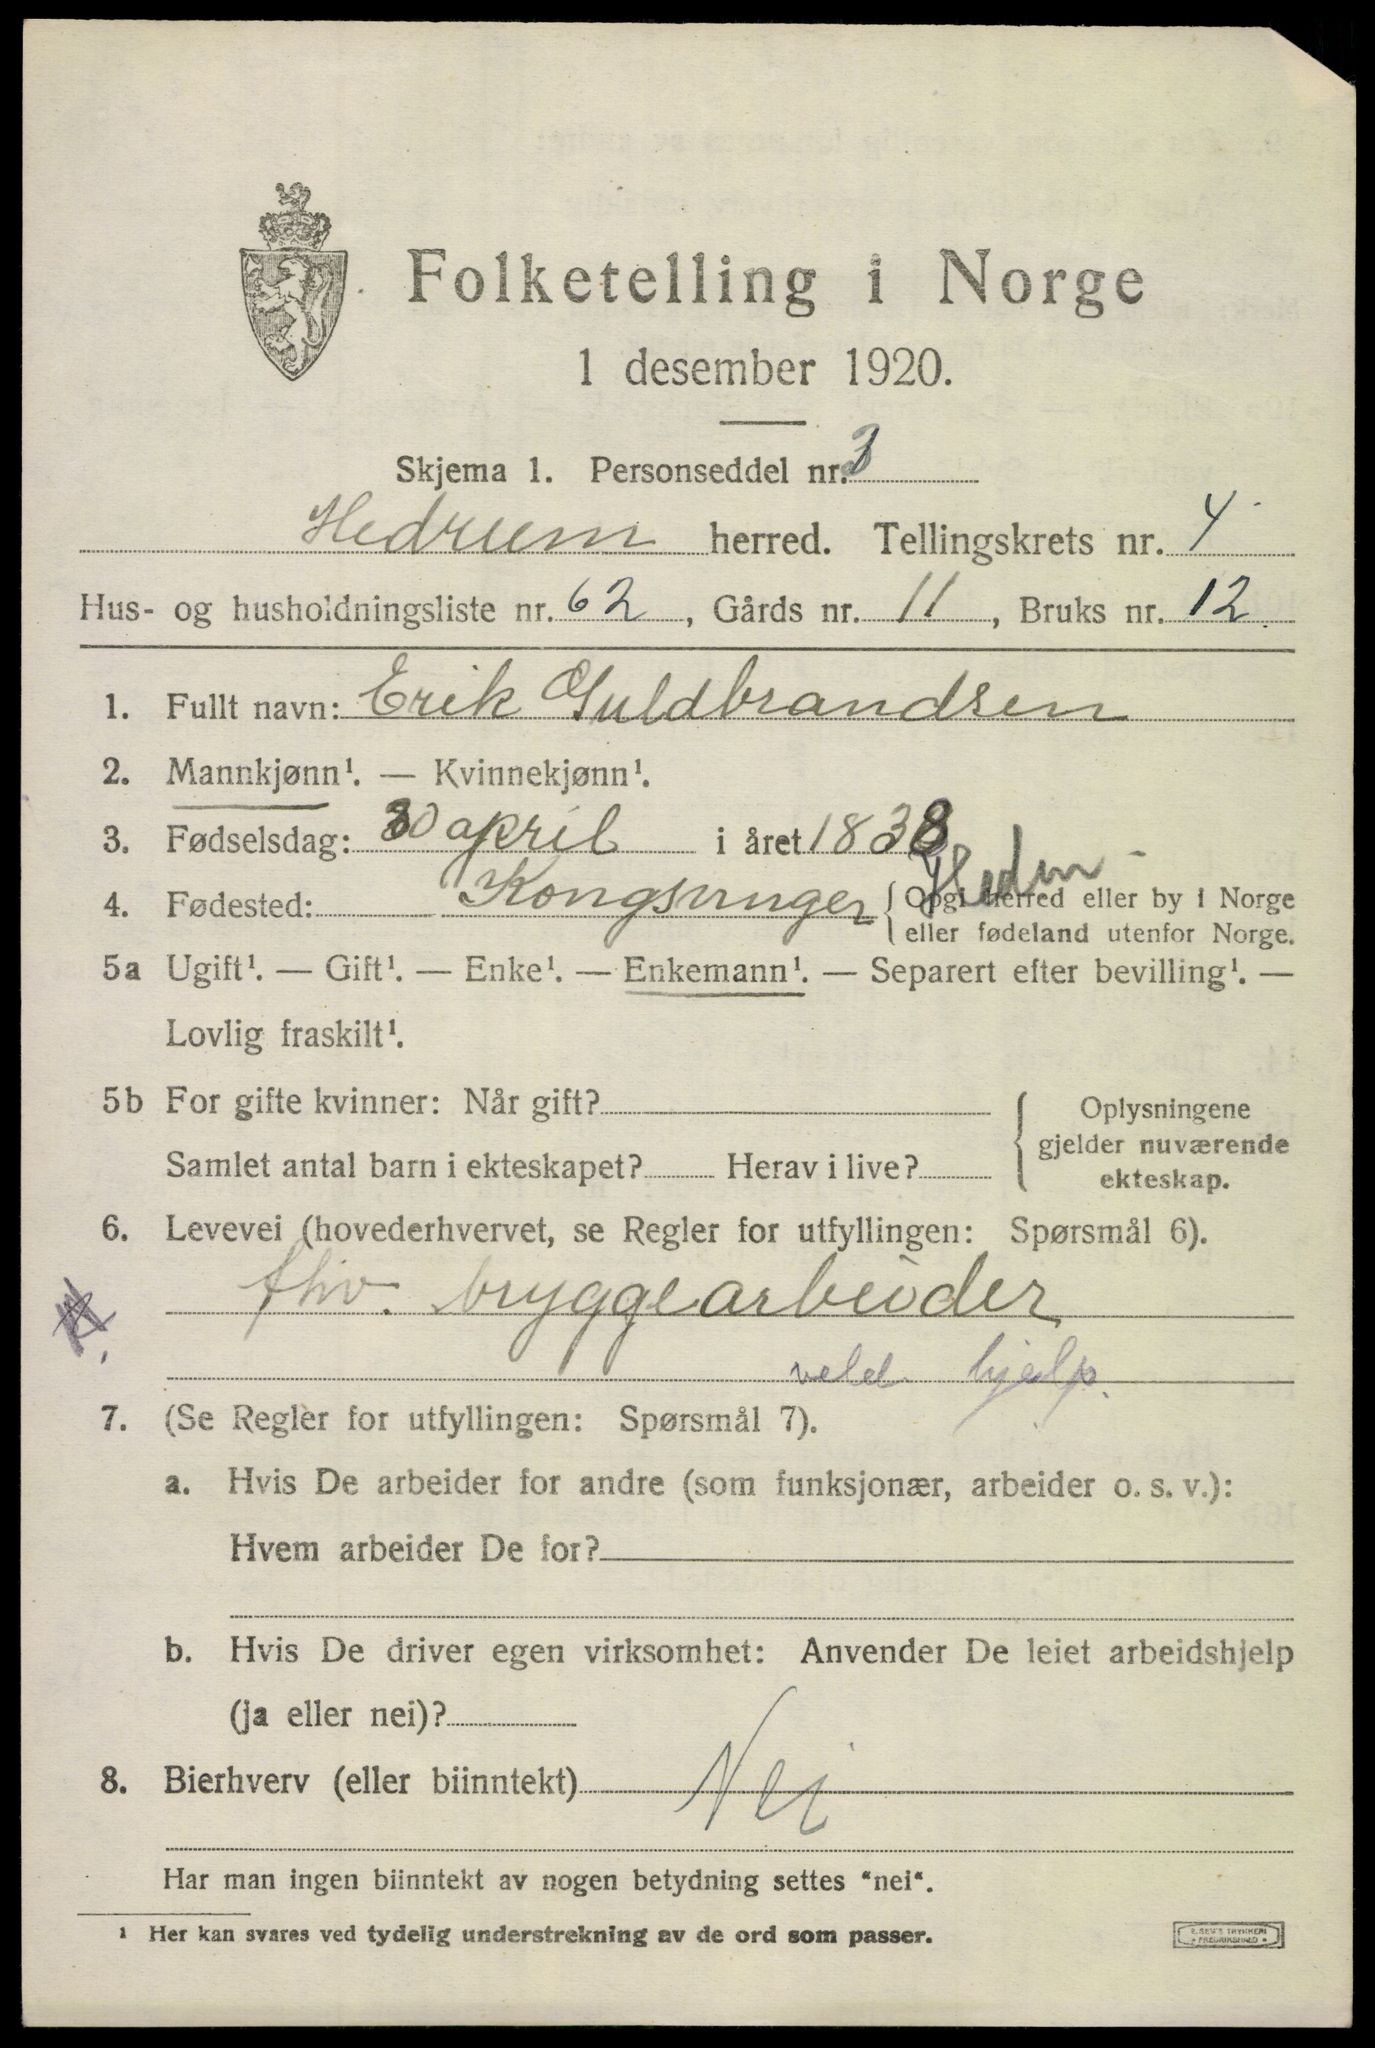 Folketelling i Norge
1 desember 1920.
Skjema 1. Personseddel nr. 3
Hedrum herred. Tellingskrets nr. 4
Hus- og husholdningsliste nr. 62, Gårds nr. 11, Bruks nr. 12
1. Fullt navn: Erik Guldbrandsen
2. Mannkjønn¹. — Kvinnekjønn¹.
3. Fødselsdag: 30 april i året 1838
4. Fødested: Kongsvinger { Opgi herred eller by i Norge
eller fødeland utenfor Norge.
5a Ugift¹. — Gift¹. — Enke¹. — Enkemann¹. — Separert efter bevilling¹. —
Lovlig fraskilt¹.
5b For gifte kvinner: Når gift? { Oplysningene
gjelder nuværende
Samlet antal barn i ekteskapet? Herav i live?
ekteskap.
6. Levevei (hovederhvervet, se Regler for utfyllingen: Spørsmål 6).
fhv. bryggearbeider
hjelp.
7. (Se Regler for utfyllingen: Spørsmål 7).
a. Hvis De arbeider for andre (som funksjonær, arbeider o. s. v.):
Hvem arbeider De for?
b. Hvis De driver egen virksomhet: Anvender De leiet arbeidshjelp
(ja eller nei)?
8. Bierhverv (eller biinntekt) Nei
Har man ingen biinntekt av nogen betydning settes "nei".
¹ Her kan svares ved tydelig understrekning av de ord som passer.